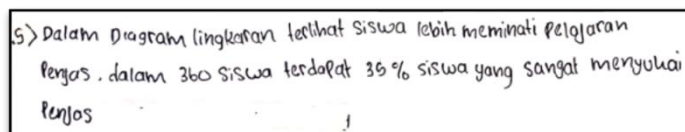 5) Dalam Diagram lingkaran terlihat siswa lebih meminati pelajaran
Penjas. dalam 360 siswa terdapat 35 % siswa yang sangat menyukai
Penjas